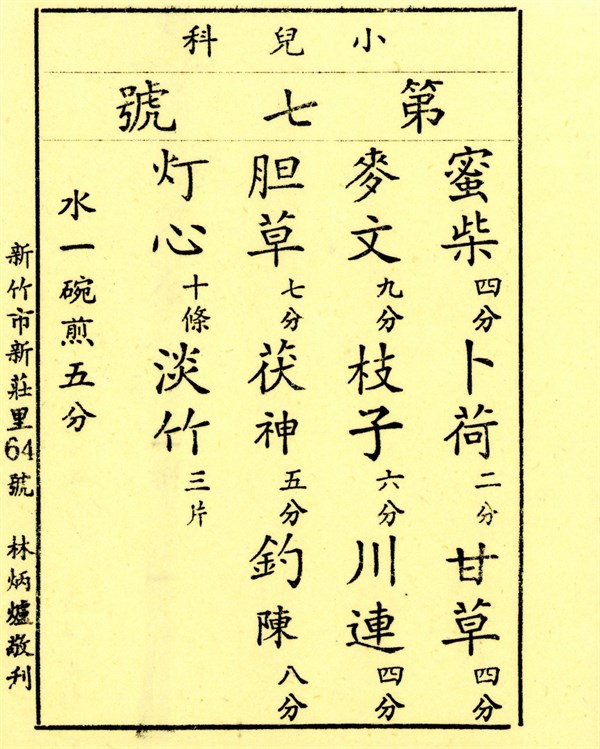 小兒科
第七號
蜜柴四分 卜荷二分 甘草四分
麥文九分 枝子六分 川連四分
胆草七分 茯神五分 釣陳八分
灯心十條 淡竹三片
水一碗煎五分
新竹市新莊里64號 林炳爐敬刋